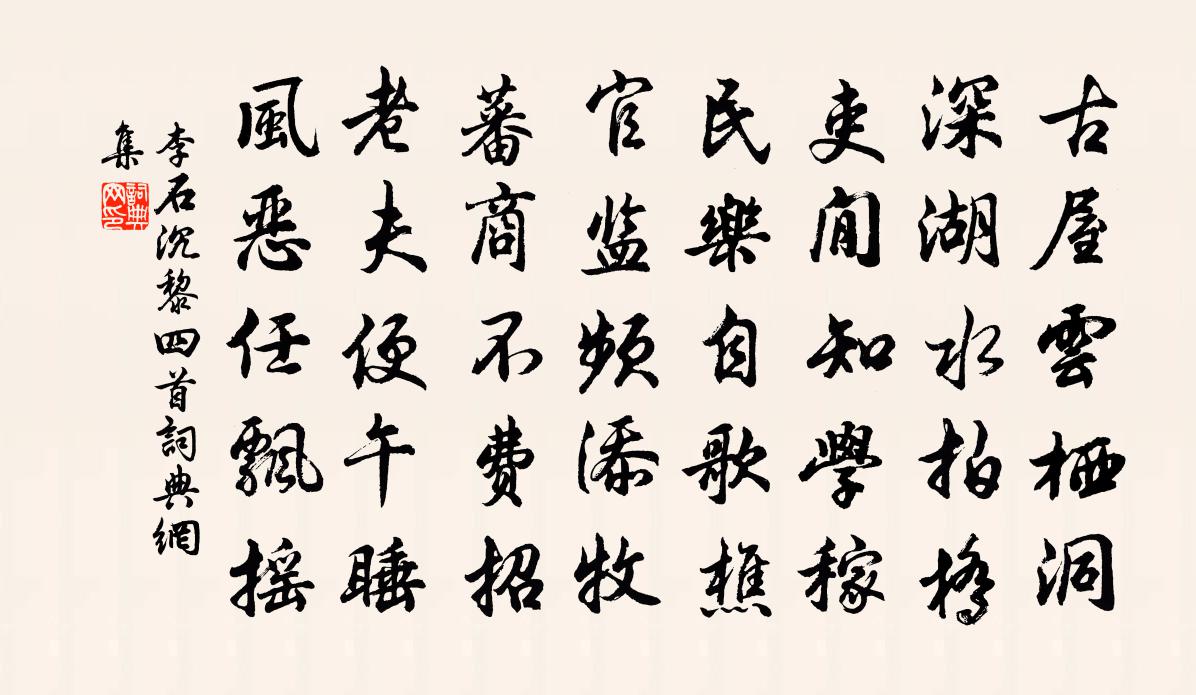 古屋雲栖洞
深湖水拍橋
吏閒知學稼
民樂自歌樵
官监頻添牧
蕃商不费招
老夫便午睡
風恶任飄摇
李石沉黎四首詞典網
集
詞典
网印